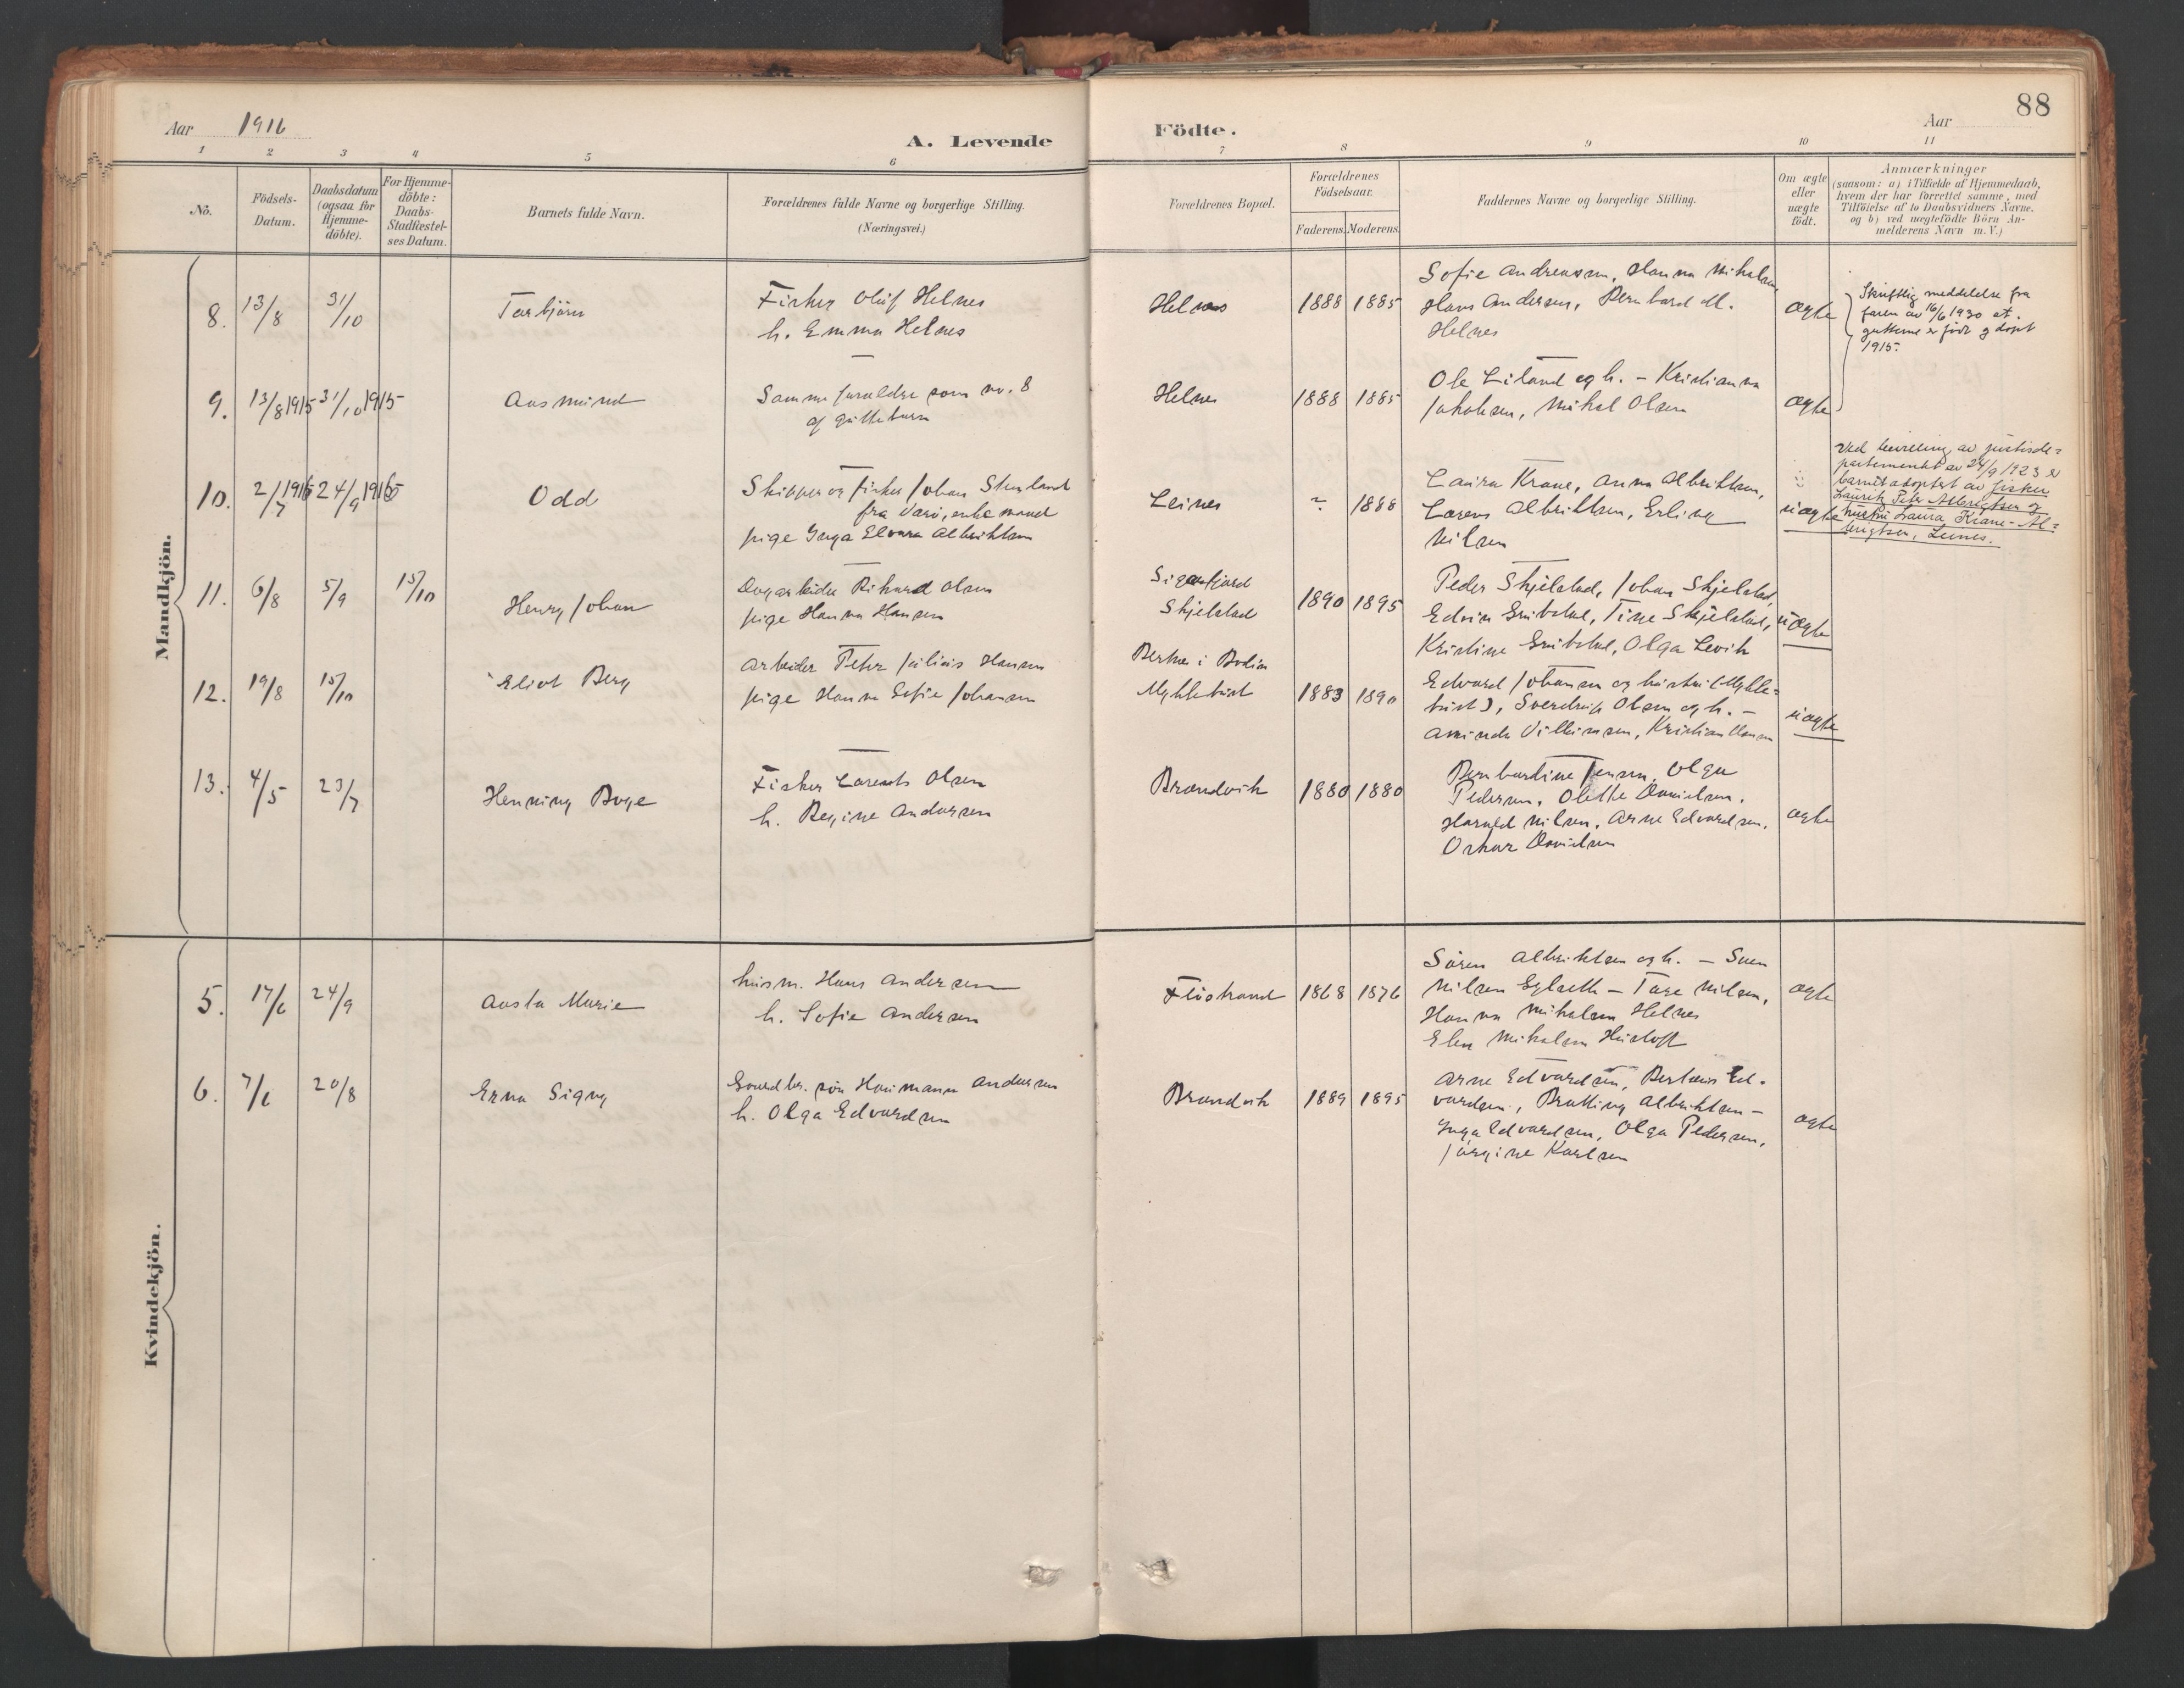 88
Aar 1916
A. Levende
Födte.
Aar
1 2 3 4 5 6 7 8 9 10 11
No.
Födsels-
Datum.
Daabsdatum
(ogsaa for
Hjemme-
döbte).
For Hjemme-
döbte:
Daabs-
Stadfæstel-
ses Datum.
Barnets fulde Navn.
Forældrenes fulde Navne og borgerlige Stilling.
(Næringsvei.)
Forældrenes Bopæl.
Forældrenes
Födselsaar.
Faderens. Moderens.
Faddernes Navne og borgerlige Stilling.
Om ægte
eller
uægte
födt.
Anmærkninger
(saasom: a) i Tilfælde af Hjemmedaab,
hvem der har forrettet samme, med
Tilföielse af to Daabsvidners Navne,
og b) ved uægtefödte Börn An-
melderens Navn m. V.)
Mandkjön.
8. 13/8 31/10 Torbjörn
Fisker Oluf Helnes
h. Emma Helnes
Helnes 1888 1885
Sofie Andreassen, Hanna Mikalsen
Hans Andersen, Bernhard M.
Helnes
ægte
Skriftlig meddelelse fra
faren av 16/6 1930 at
guttene er född og döpt
1915.
9. 13/8 1915 31/10 1915 Aasmund
Samme foraeldre som no. 8
af guttebarn
Helnes 1888 1885
Ole Liland og h. – Kristianna
Jakobsen, Mikal Olsen
ægte
10. 2/7 1915 24/9 1915 Odd
Skipper og fisker Johan Stenland
fra Værö, enkemand
pige Inga Elvara Albriktsen
Leines ? 1888
Laura Krane, Anna Albriktsen,
Lorens Albriktsen, Erling
Nilsen
uægte
Ved bevilling av justisde=
partementet av 24/9 1923 er
barnet adoptert av fisker
Laurits Peter Albrigtsen og
hustru Laura Krane-Al=
brigtsen, Leines.
11. 6/8 5/9 15/10 Henry Johan
Dagarbeider Rikard Olsen
pige Hanna Hansen
Sigerfjord
Skjelstad 1890 1895
Peder Skjelstad, Johan Skjelstad,
Edvin , Tine Skjelstad,
Kristine , Olga Levik
uægte
12. 19/8 15/10 Eliot Berg
Arbeider Peter Julius Hansen
pige Hanna Sofie Johansen
i Bodin
Myklebust 1883 1890
Edvard Johansen og hustru (Mykle=
bust), Sverdrup Olsen og h. –
Aminda Villumsen, Kristian Hansen
uægte
13. 4/5 23/7 Henning Boye
Fisker Lorents Olsen
h. Regine Andersen
Brændvik 1880 1880
Bernhardine Jensen, Olga
Pedersen, Olette Danielsen,
Harald Nilsen, Arne Edvardsen,
Oskar Danielsen
ægte
Kvindekjön.
5. 17/6 24/9 Aasta Marie
husm. Hans Andersen
h. Sofie Andersen
Flostrand 1868 1876
Sören Albriktsen og h. – Suen
Nilsen – Tore Nilsen,
Hanna Mikalsen Helnes
Elen Mikalsen
ægte
6. 7/6 20/8 Erna Signy
Gaardbr. sön Hartmann Andersen
h. Olga Edvardsen
Brændvik 1889 1895
Arne Edvardsen, Ed-
vardsen, Albriktsen –
Inga Edvardsen, Olga Pedersen,
Jörgine Karlsen
ægte